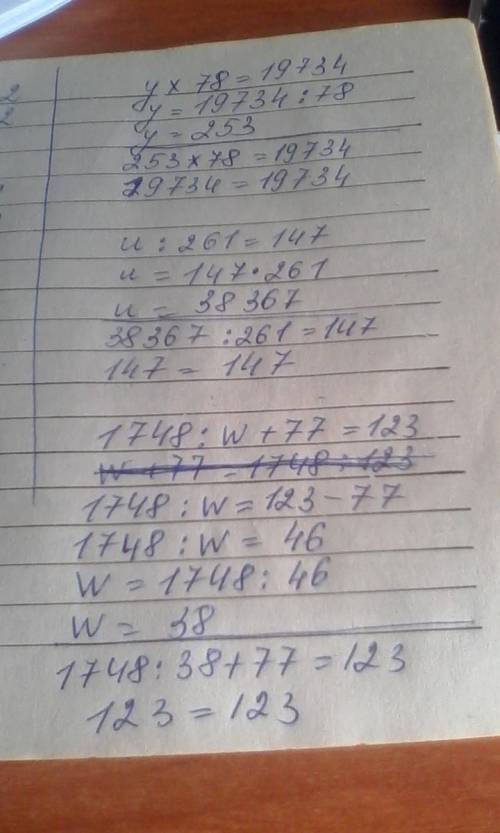 2
2
y × 78 = 19734
y = 19734 : 78
y = 253
253 × 78 = 19734
19734 = 19734
u : 261 = 147
u = 147 · 261
u = 38367
38367 : 261 = 147
147 = 147
1748 : w + 77 = 123
w + 77 = 1748 : 123
1748 : w = 123 - 77
1748 : w = 46
w = 1748 : 46
w = 38
1748 : 38 + 77 = 123
123 = 123